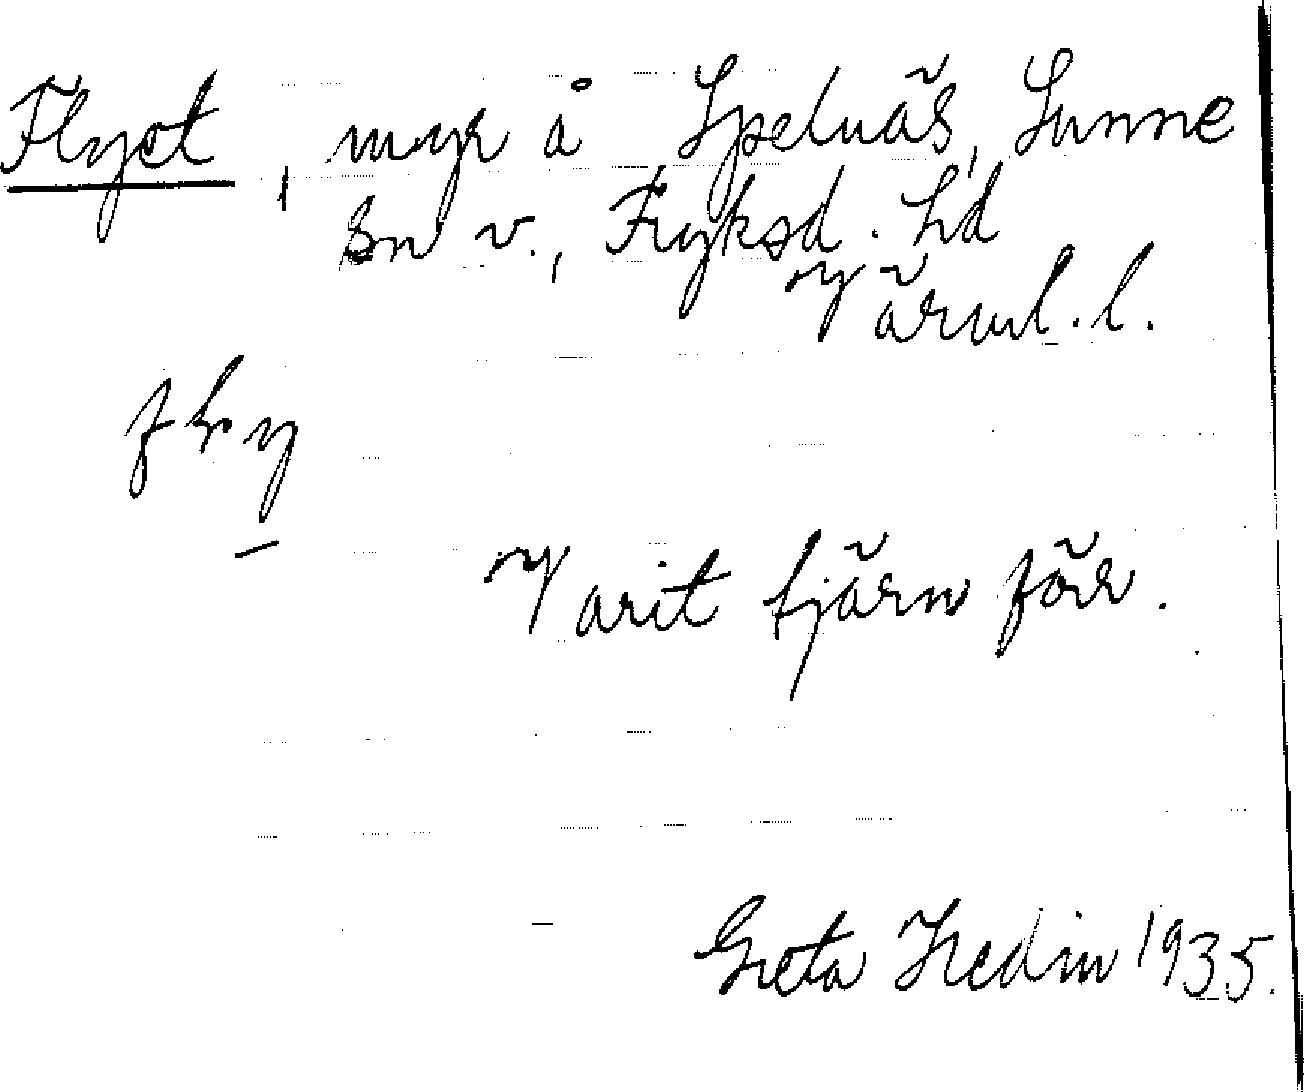 Flyet, myr å Spelnäs, Sunne
sn v., Fryksd. hd
Värml. l.
Varit tjärn förr.
Greta Hedin 1935.